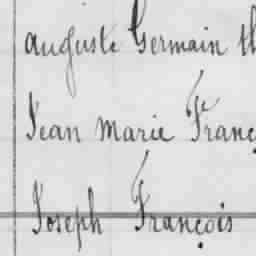 auguste Germain th
Jean Marie Franç
Joseph François